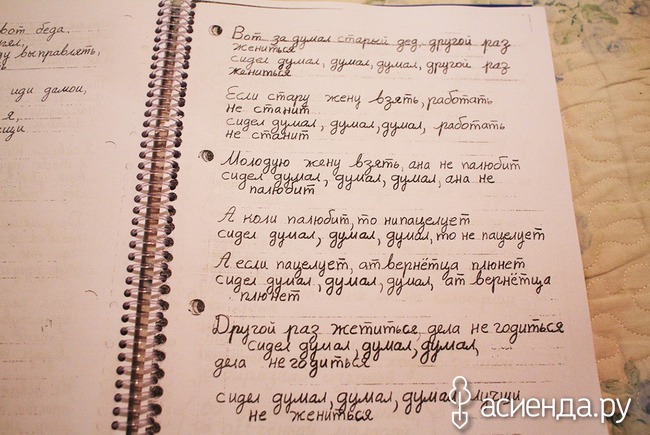 вот беда.
ду выправлять,
иди домои,
я,
Вот за думал старый дед, другой раз
жениться
сидел думал, думал, думал, другой раз
жениться
Если стару жену взять, работать
не станит
сидел думал, думал, думал, работать
не станит
Молодую жену взять, ана не палюбит
сидел думал, думал, думал, ана не
палюбит
А коли палюбит, то нипацелует
сидел думал, думал, думал, то не пацелует
А если пацелует, ат вернётца плюнет
сидел думал, думал, думал, ат вернётца
плюнет
Другой раз жетиться, дела не годиться
сидел думал, думал, думал,
дела не годиться
сидел думал, думал, думал лучши
не жениться
асиенда.ру